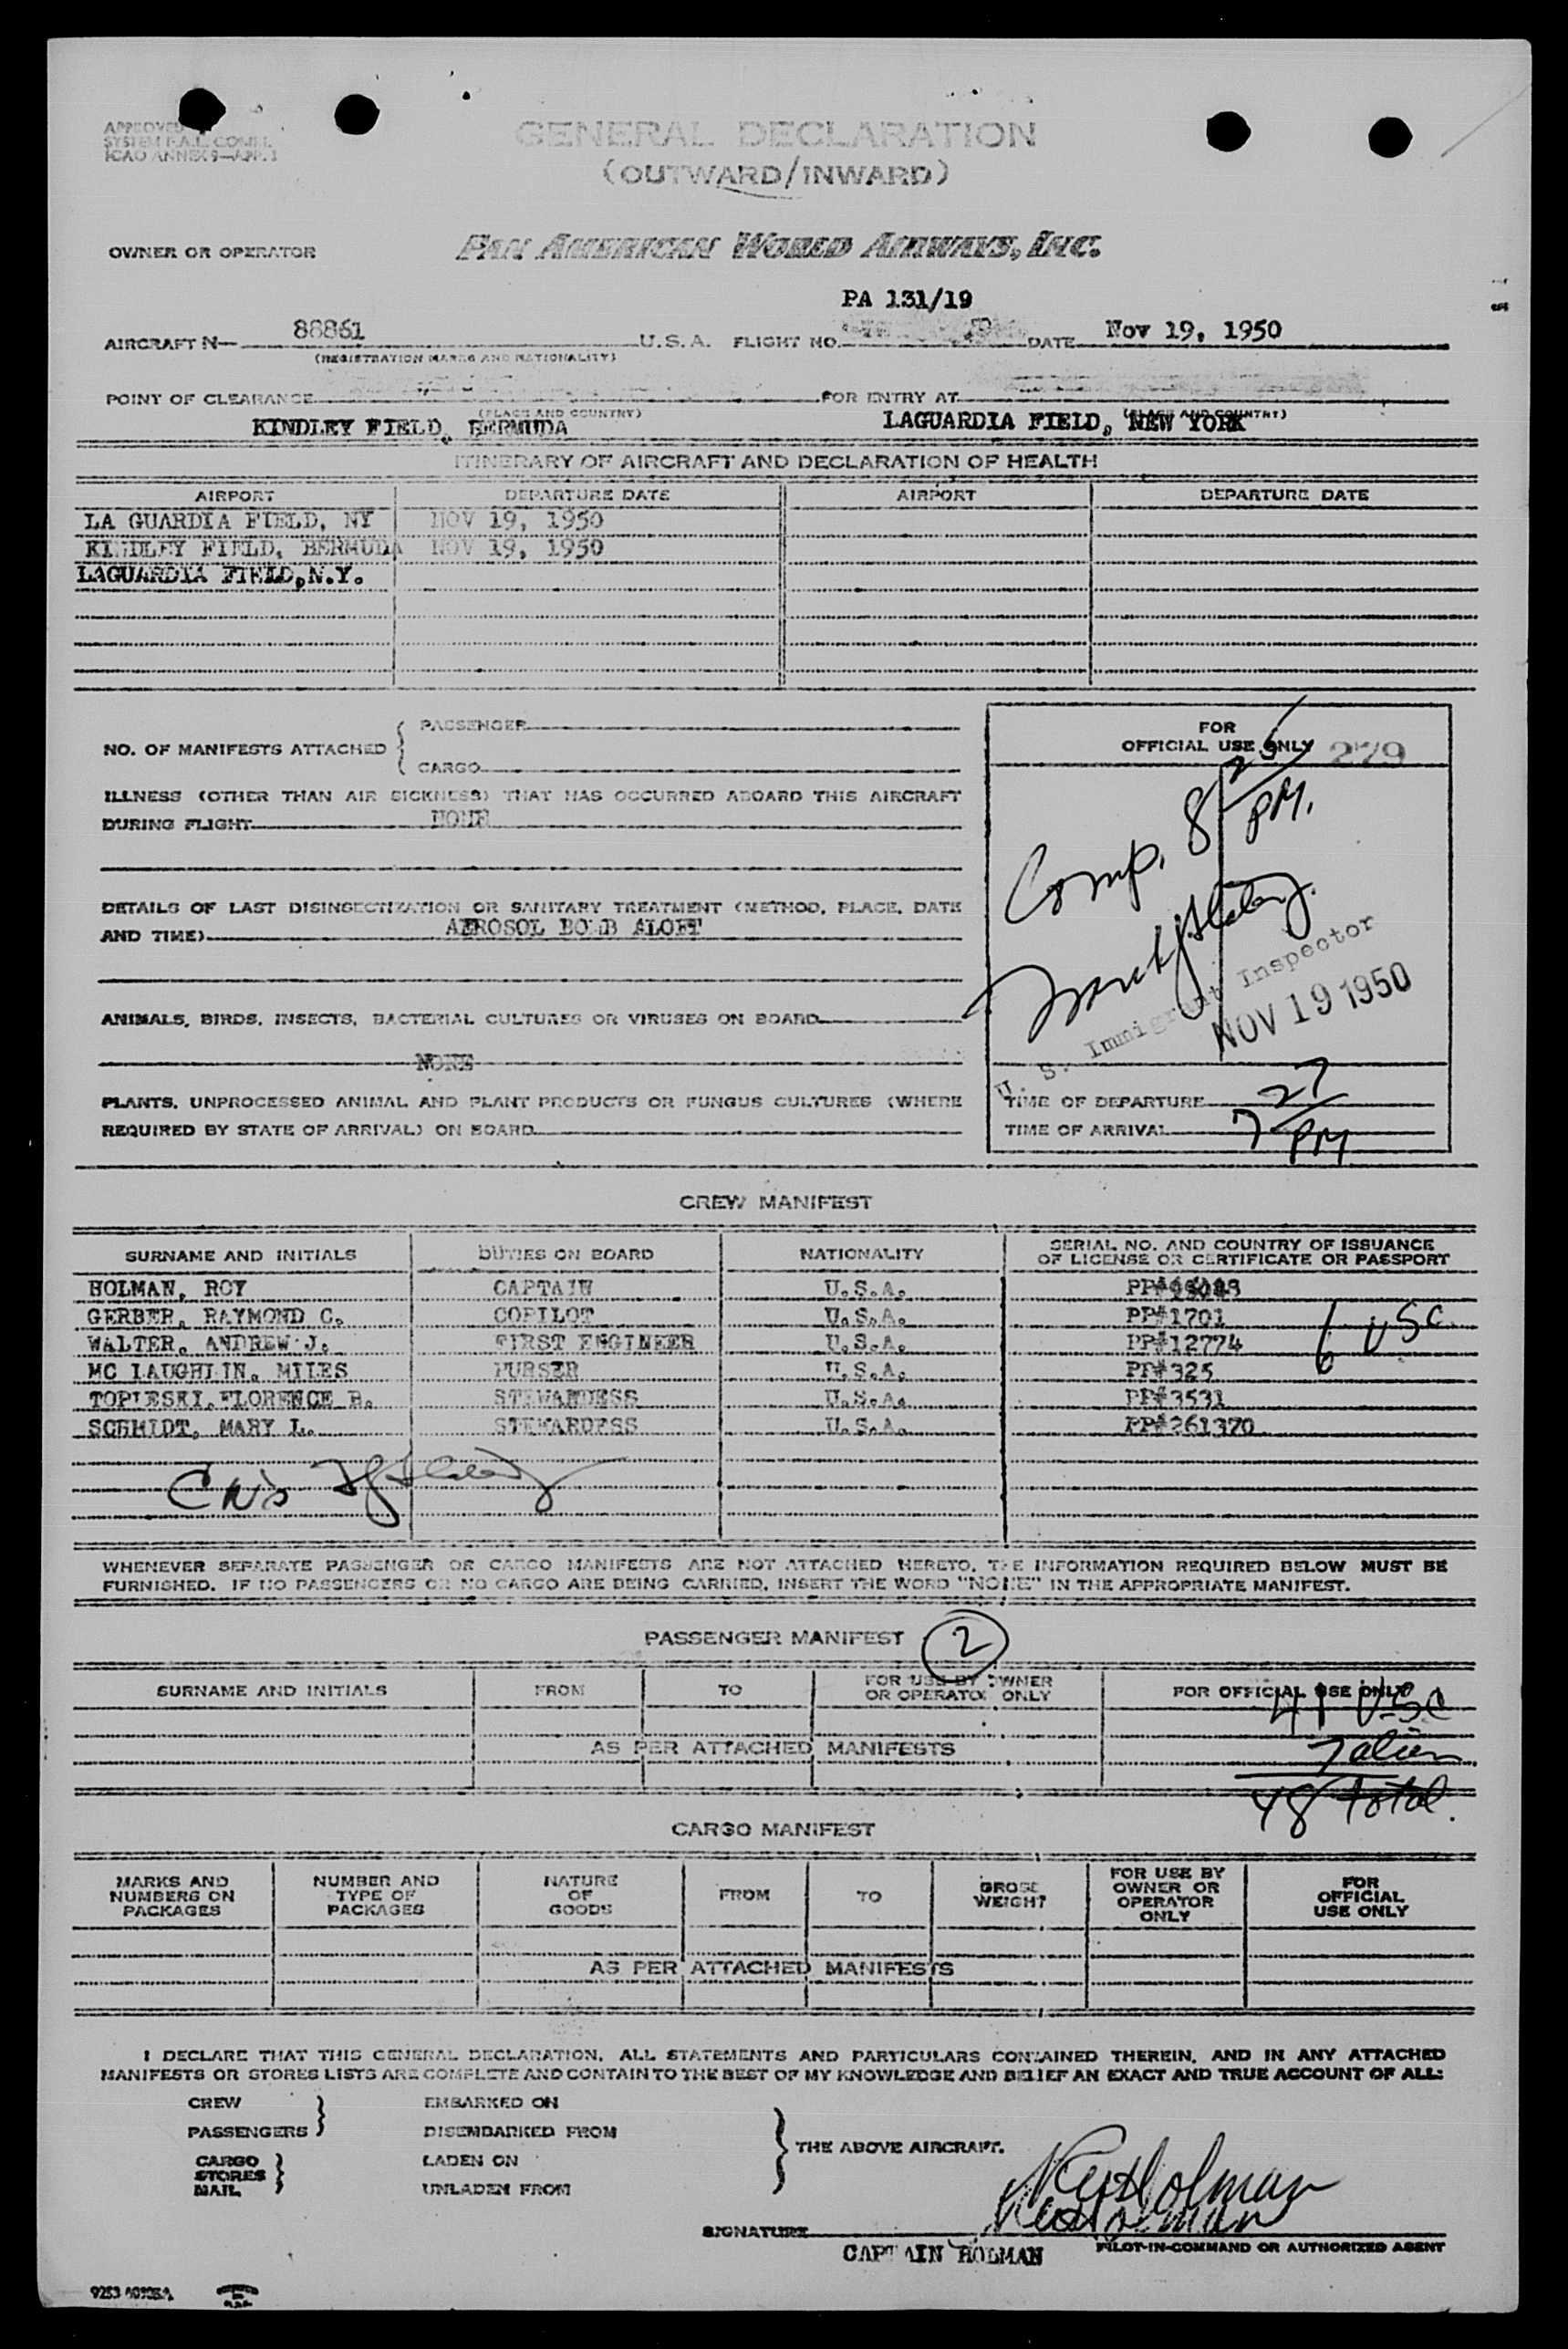 APPROVED
SYSTEM F.A.L. COMM.
ICAO ANNEX 9—APP. 1
GENERAL DECLARATION
(OUTWARD/INWARD)
OWNER OR OPERATOR PAN AMERICAN WORLD AIRWAYS, INC.
PA 131/19
AIRCRAFT N— 88861 U.S.A. FLIGHT NO. DATE Nov 19, 1950
(REGISTRATION MARKS AND NATIONALITY)
POINT OF CLEARANCE FOR ENTRY AT
(PLACE AND COUNTRY) (PLACE AND COUNTRY)
KINDLEY FIELD, BERMUDA LAGUARDIA FIELD, NEW YORK
ITINERARY OF AIRCRAFT AND DECLARATION OF HEALTH
AIRPORT DEPARTURE DATE AIRPORT DEPARTURE DATE
LA GUARDIA FIELD, NY NOV 19, 1950
KINDLEY FIELD, BERMUDA NOV 19, 1950
LAGUARDIA FIELD, N.Y.
NO. OF MANIFESTS ATTACHED { PASSENGER
CARGO
ILLNESS (OTHER THAN AIR SICKNESS) THAT HAS OCCURRED ABOARD THIS AIRCRAFT
DURING FLIGHT NONE
DETAILS OF LAST DISINSECTIZATION OR SANITARY TREATMENT (METHOD, PLACE, DATE
AND TIME) AEROSOL BOMB ALOFT
ANIMALS, BIRDS, INSECTS, BACTERIAL CULTURES OR VIRUSES ON BOARD
NONE
PLANTS, UNPROCESSED ANIMAL AND PLANT PRODUCTS OR FUNGUS CULTURES (WHERE
REQUIRED BY STATE OF ARRIVAL) ON BOARD
FOR
OFFICIAL USE ONLY 279
Comp. 8 25/PM.
U. S. Immigrant Inspector
NOV 19 1950
TIME OF DEPARTURE
TIME OF ARRIVAL 7 27/PM
CREW MANIFEST
SURNAME AND INITIALS DUTIES ON BOARD NATIONALITY SERIAL NO. AND COUNTRY OF ISSUANCE
OF LICENSE OR CERTIFICATE OR PASSPORT
HOLMAN, ROY CAPTAIN U.S.A.
GERBER, RAYMOND C. COPILOT U.S.A. PP#1701
WALTER, ANDREW J. FIRST ENGINEER U.S.A. PP#12774
MC LAUGHLIN, MILES PURSER U.S.A. PP#325
TOPLESKI, FLORENCE B. STEWARDESS U.S.A. PP#3531
SCHMIDT, MARY L. STEWARDESS U.S.A. PP#261370
6 USC
WHENEVER SEPARATE PASSENGER OR CARGO MANIFESTS ARE NOT ATTACHED HERETO, THE INFORMATION REQUIRED BELOW MUST BE
FURNISHED. IF NO PASSENGERS OR NO CARGO ARE BEING CARRIED, INSERT THE WORD "NONE" IN THE APPROPRIATE MANIFEST.
PASSENGER MANIFEST 2
SURNAME AND INITIALS FROM TO FOR USE BY OWNER
OR OPERATOR ONLY FOR OFFICIAL USE ONLY
41 USC
AS PER ATTACHED MANIFESTS 7 alien
48 total.
CARGO MANIFEST
MARKS AND
NUMBERS ON
PACKAGES
NUMBER AND
TYPE OF
PACKAGES
NATURE
OF
GOODS
FROM
TO
GROSS
WEIGHT
FOR USE BY
OWNER OR
OPERATOR
ONLY
FOR
OFFICIAL
USE ONLY
AS PER ATTACHED MANIFESTS
I DECLARE THAT THIS GENERAL DECLARATION, ALL STATEMENTS AND PARTICULARS CONTAINED THEREIN, AND IN ANY ATTACHED
MANIFESTS OR STORES LISTS ARE COMPLETE AND CONTAIN TO THE BEST OF MY KNOWLEDGE AND BELIEF AN EXACT AND TRUE ACCOUNT OF ALL:
CREW EMBARKED ON
PASSENGERS } DISEMBARKED FROM
THE ABOVE AIRCRAFT.
CARGO LADEN ON
STORES }
MAIL UNLADEN FROM
Roy Holman
Roy Holman
SIGNATURE
CAPTAIN HOLMAN PILOT-IN-COMMAND OR AUTHORIZED AGENT